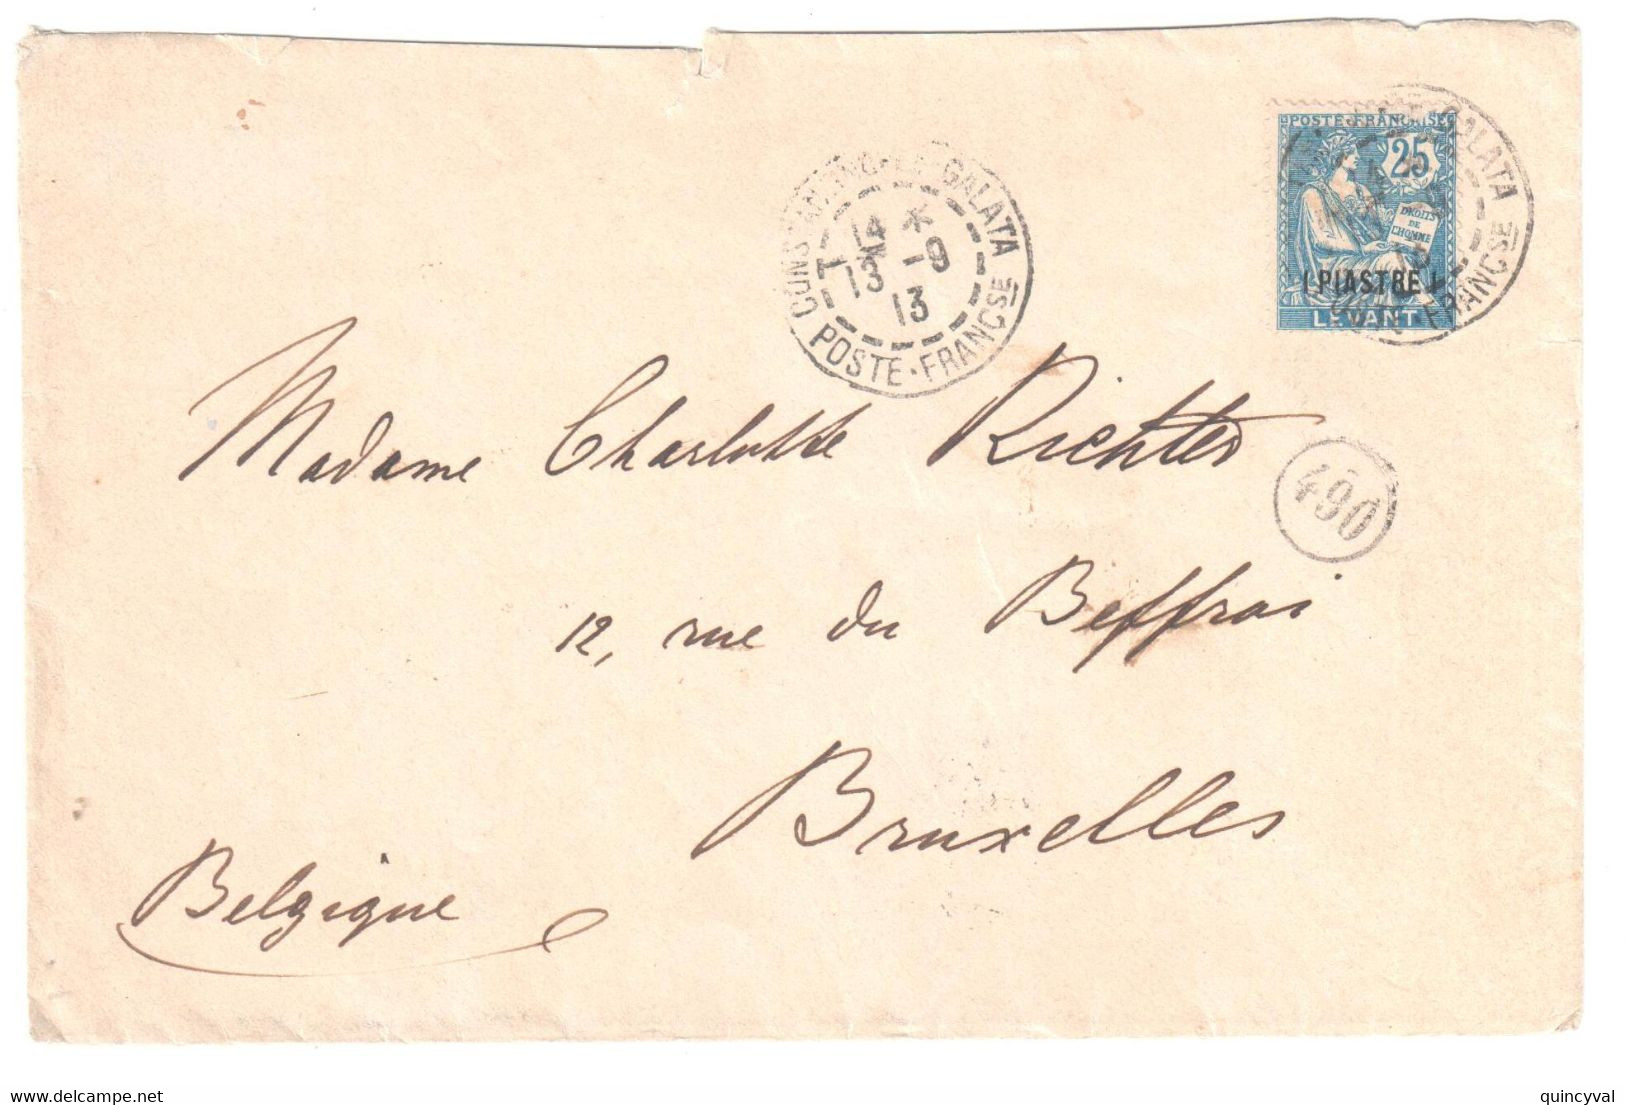 CONSTANTINOPLE GALATA
14 *
13 -9
13
POSTE • FRANCSE
POSTE FRANÇAISE
25
DROITS
DE
L'HOMME
1 PIASTRE 1
LEVANT
GALATA
FRANCSE
Madame Charlotte Richter
490
12, rue du Beffroi
Bruxelles
Belgique
delcampe.net
quincyval